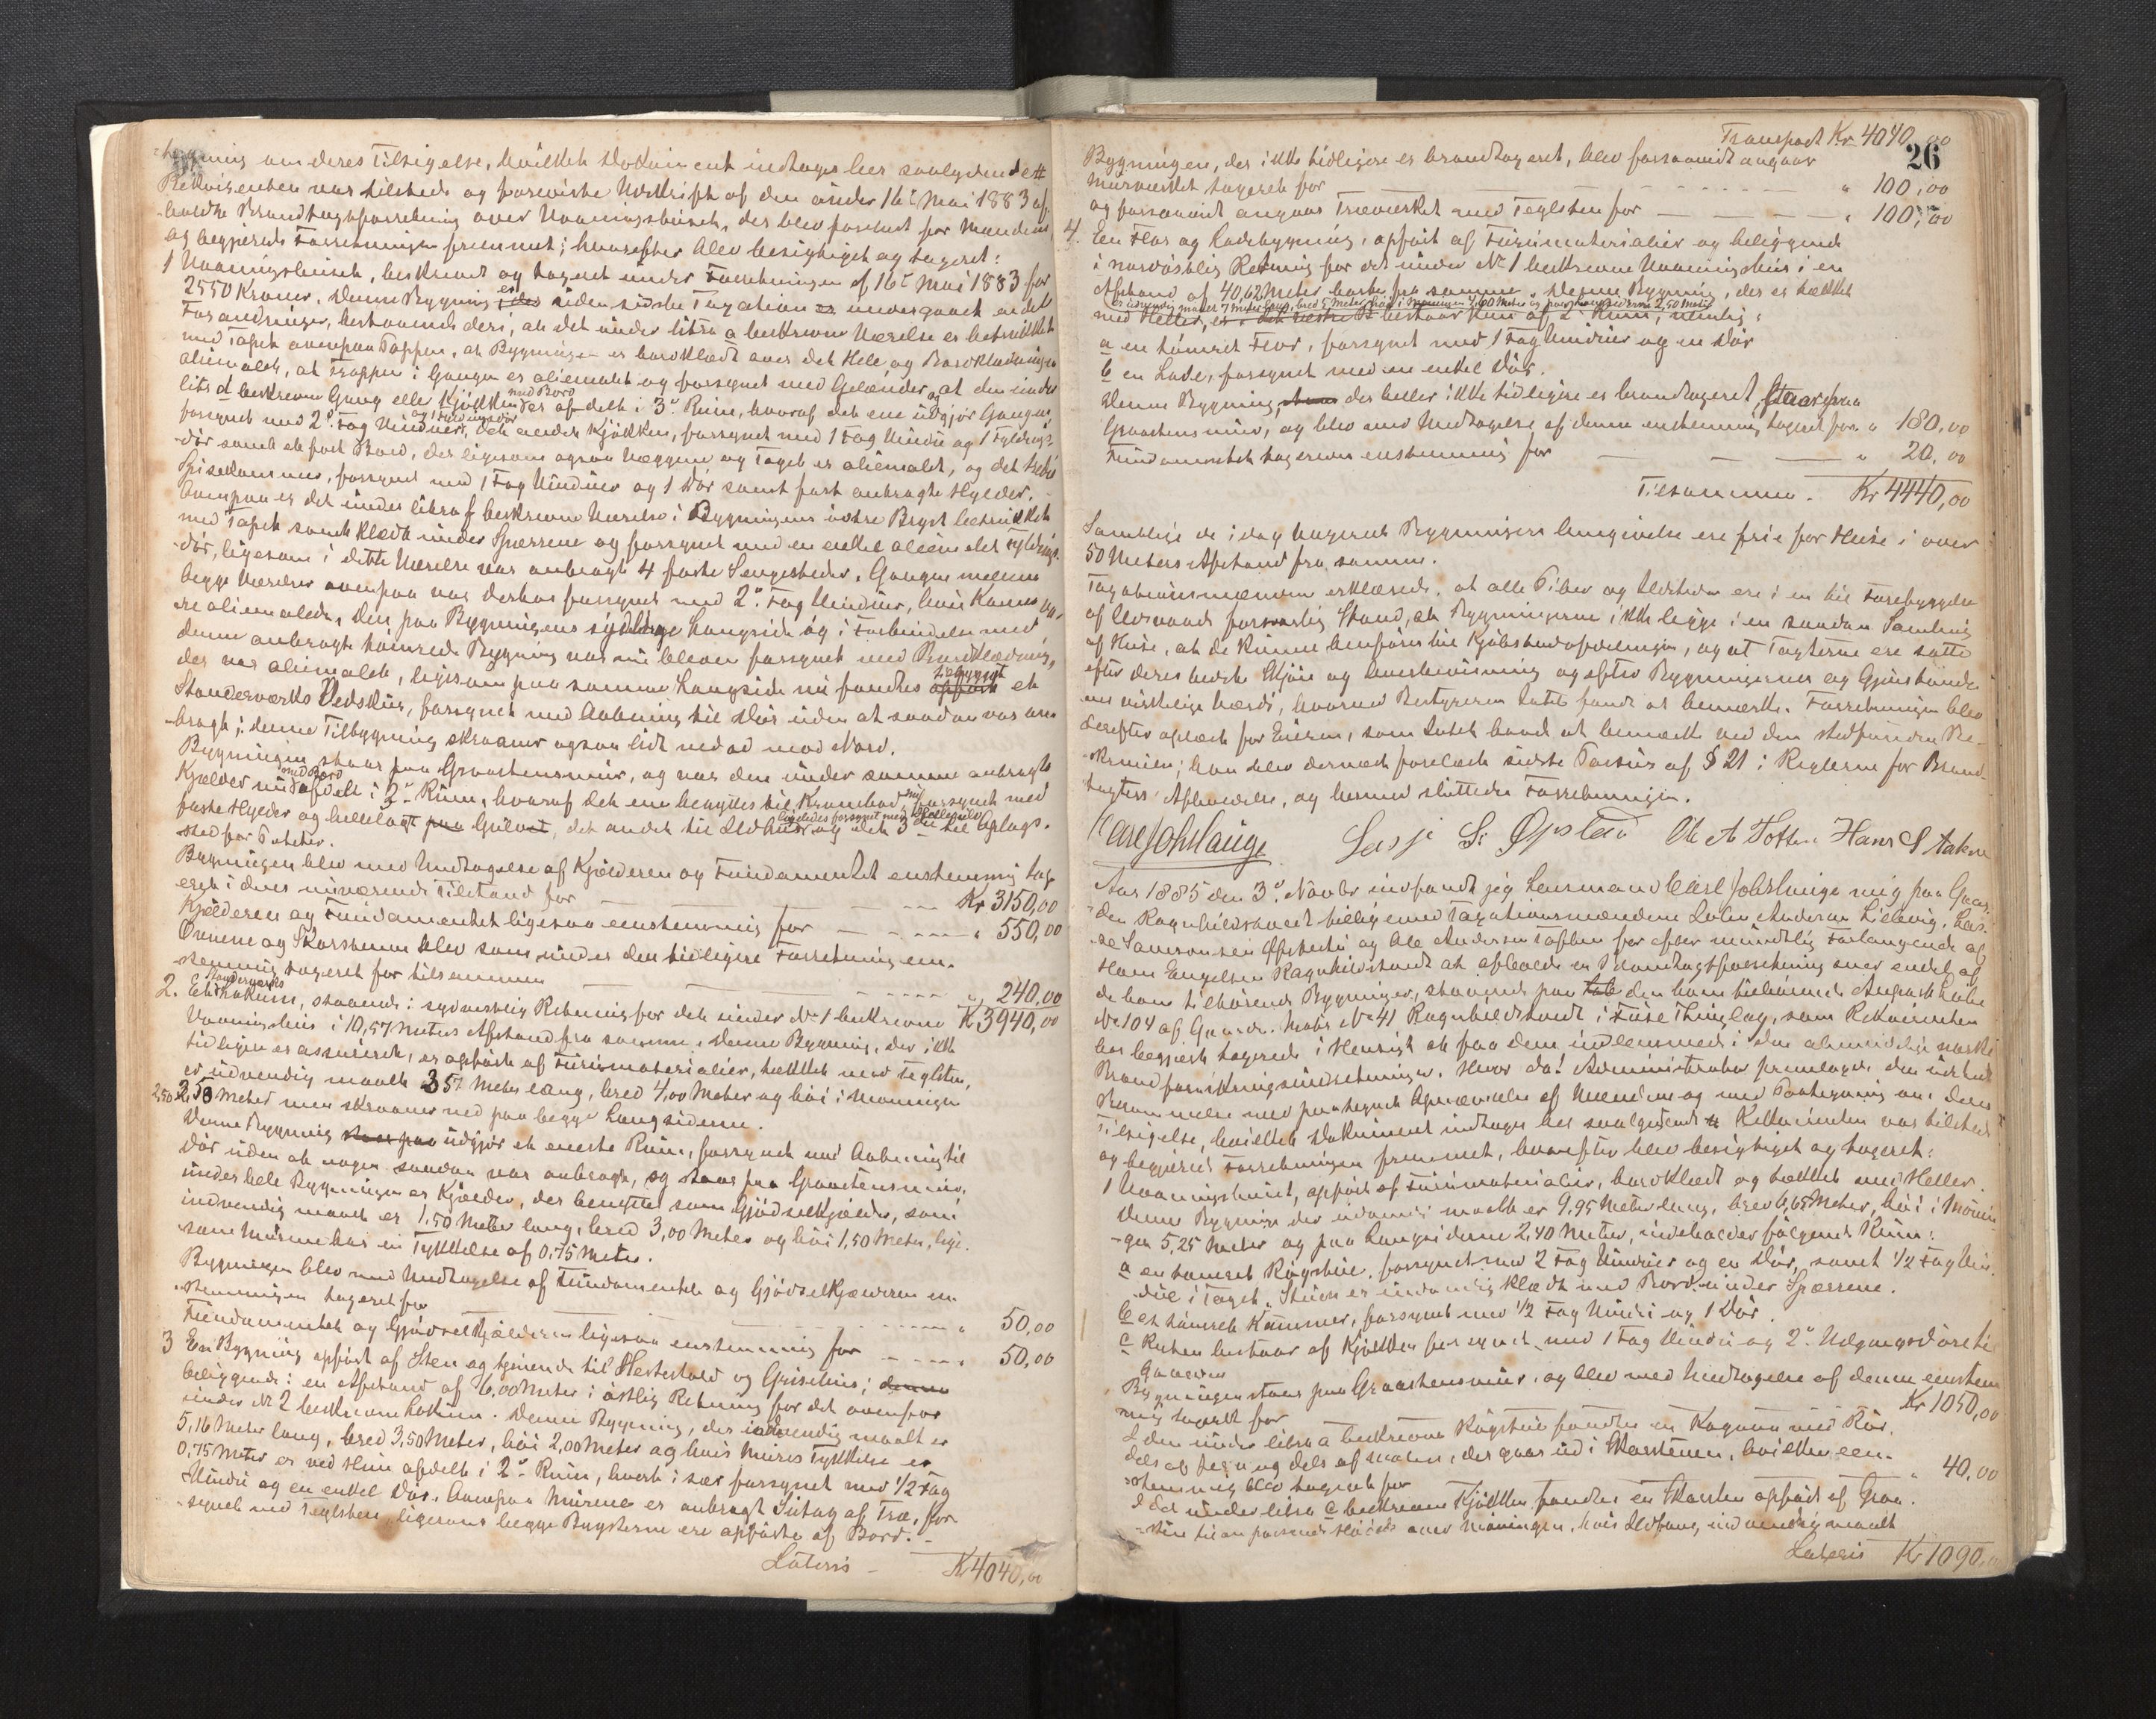 tegning om deres Tilsigelse, hvilket Dokument indtages her saalydende #
Rekvirenten var tilstede og foreviste Udskrift af den under 16de Mai 1883 af-
holdte Brandtagtsforretning over Vaaningshuset, der blev forelæst for Mændene,
og begjærede Forretningen fremmet; hvorefter blev besigtiget og taxeret:
1 Vaaningshuset, beskrevet og taxeret under Forretningen af 16de Mai 1883 for
2550 Kroner. Denne Bygning er siden sidste Taxation undergaaet endel
Forandringer, bestaaende deri, at det under litra a beskrevne Værelse er betrukket
med Tapet ovenpaa Pappen, at Bygningen er bordklædt over det Hele og Bordklædningen
oliemalet, at Trappen i Gangen er oliemalet og forsynet med Gelænder, og at den under
litr d beskrevne Gang eller Kjøkken med Bord er afdelt i 3de Rum, hvoraf det ene udgjør Gangen,
forsynet med 2de Fag Vinduer, og 1 Udgangsdør det andet Kjøkken, forsynet med 1 Fag Vindu og 1 Fyldings-
dør samt et fast Bord, der ligesom ogsaa Væggene og Taget er oliemalet, og det tredie
Spisekammer, forsynet med 1 Fag Vinduer og 1 Dør samt fast anbragte Hylder.
Ovenpaa er det under litra f beskrevne Værelse i Bygningens østre Bryst betrukket
med Tapet samt klædt under Sperrene og forsynet med en enkel oliemalet Fyldings-
dør, ligesom i dette Værelse var anbragt 4 faste Sengesteder. Gangen mellem
begge Værelser ovenpaa var derhos forsynet med 2de Fag Vinduer, hvis Karme va-
re oliemalede. Den paa Bygningens sydlige Langside og i Forbindelse med
denne anbragte tømrede Bygning var nu bleven forsynet med Bordklædning,
der var oliemalet, ligesom paa samme Langside nu fandtes opført tilbygget et
Standerværks Vedskur, forsynet med Aabning til Dør uden at saadan var an-
bragt; denne Tilbygning skraaner ogsaa lidt nedad mod Nord.
Bygningen staar paa Graastensmur, og var den under samme anbragte
Kjælder nu med Bord afdelt i 3de Rum, hvoraf det ene benyttes til Krambod, forsynet med
faste Hylder og hellelagt paa Gulvet, det andet til Ildhus ligeledes forsynet med Hellegulv og det 3die til Oplags-
sted for Poteter.
Bygningen blev med Undtagelse af Kjælderen og Fundamentet enstemmig tax-
eret i dens nuværende Tilstand for — — — Kr 3150,00
Kjælderen og Fundamentet ligesaa eenstemmig for — — — " 550,00
Ovnene og Skorstenen blev som under den tidligere Forretning en-
stemmig taxeret for tilsammen — — — " 240,00
Kr 3940,00
2. Et Standerværks Lokum, staaende i sydvestlig Retning for det under No 1 beskrevne
Vaaningshus i 10,57 Meters Afstand fra samme. Denne Bygning, der ikke
tidligere er assureret, er opført af Furumaterialier, tækket med Teglsten,
er udvendig maalt 3,57 Meter lang, bred 4,00 Meter og høi i Mønningen
2,50 Meter men skraaner ned paa begge Langsiderne.
Denne Bygning staar paa udgjør et eneste Rum, forsynet med Aabning til
Dør uden at nogen saadan var anbragt, og staar paa Graastensmur.
Under hele Bygningen er Kjælder, der benyttes som Gjødselkjælder, som
indvendig maalt er 1,50 Meter lang, bred 3,00 Meter og høi 1,50 Meter, lige-
som Murene har en Tykkelse af 0,75 Meter.
Bygningen blev med Undtagelse af Fundamentet og Gjødselkjælderen en-
stemmigen taxeret for — — — " 50,00
Fundamentet og Gjødselkjælderen ligesaa enstemmig for — — — " 50,00
3 En Bygning opført af Sten og tjenende til Hestestald og Grisehus; denne
beliggende i en Afstand af 6,00 Meter i østlig Retning for det ovenfor
under No 2 beskrevne Lokum. Denne Bygning, der indvendig maalt er
5,16 Meter lang, bred 3,50 Meter, høi 2,00 Meter og hvis Mures Tykkelse er
0,75 Meter er ved Mur afdelt i 2de Rum, hvert i sær forsynet med 1/2 Fag
Vindu og en enkel Dør. Ovenpaa Murene er anbragt Sutag af Træ, for-
synet med Teglsten, ligesom begge Brysterne ere opførte af Bord.
Lateris — Kr 4040,00
26
Transport Kr 4040,00
Bygningen, der ikke tidligere er brandtaxeret, blev forsaavidt angaar
Murværket taxeret for — — — " 100,00
og forsaavidt angaar Træværket med Teglsten for — — — " 100,00
4. En Flor og Ladebygning, opført af Furumaterialier og beliggende
i nordøstlig Retning for det under No 1 beskrevne Vaaningshus i en
Afstand af 40,62 Meter borte fra samme. Denne Bygning, der er tækket
er udvendig maalt 7 Meter lang, bred 5 Meter, høi i Mønningen 4,60 Meter og paa Langsiderne 2,50 Meter
med Heller, bestaar kun af 2 Rum, nemlig:
a en tømret Flor, forsynet med 1 Fag Vinduer og en Dør
b en Lade, forsynet med en enkel Dør.
Denne Bygning, der heller ikke tidligere er brandtaxeret, staar paa
Graastensmur, og blev med Undtagelse af denne enstemmig taxeret for " 180,00
Fundamentet taxeres enstemmig for — — — " 20,00
Tilsammen. Kr 4440,00
Samtlige de idag taxerede Bygningers Omgivelse ere frie for Huse i over
50 Meters Afstand fra samme.
Taxationsmændene erklærede, at alle Piber og Ildsteder ere i en til Forebyggelse
af Ildsvaade forsvarlig Stand, at Bygningerne ikke ligge i en saadan Samling
af Huse, at de kunne henføres til Kjøbstadafdelingen, og at Taxterne ere satte
efter deres bedste Skjøn og Overbevisning og efter Bygningernes og Gjenstande-
nes virkelige Værdi, hvorved Bestyreren Intet fandt at bemærke. Forretningen blev
derefter oplæst for Eieren, som Intet havde at bemærke ved den stedfundne Be-
skrivelse; han blev dernæst forelæst sidste Passus af § 21 i Reglerne for Brand-
taxters Afholdelse, og hermed sluttedes Forretningen.
Carl Joh Hauge Lasse S. Øpsted Ole A Toften Hans S takne
Aar 1885 den 3de Novbr indfandt jeg Lensmand Carl Joh Hauge mig paa Gaar-
den Ragnhildstvedt tilligemed Taxationsmændene John Anderson Lillevig, Las-
se Samsonsen Øpstedt og Ole Andersen Toften for efter mundtlig Forlangende af
Hans Engelsen Ragnhildstvedt at afholde en Brandtaxtforretning over endel af
de ham tilhørende Bygninger, staaende paa den ham tilhørende Anpart Løbe
No 104 af Gaarden Matr No 41 Ragnhildstvedt i Fuse Thinglag, som Rekvirenten
har begjært taxerede i Hensigt at faa dem indlemmede i den almindelige norske
Brandforsikringsindretning. Hvor da! Administrator fremlagde den udstedte
Berammelse med paategnet Opnævnelse af Mændene og med Paategning om deres
Tilsigelse, hvilket Dokument indtages her saalydende # Rekvirenten var tilstede
og begjærede Forretningen fremmet, hvorefter blev besigtiget og taxeret:
1 Vaaningshuset, opført af Furumaterialier, bordklædt og tækket med Heller.
Denne Bygning der udvendig maalt er 9,95 Meter lang, bred 6,65 Meter, høi i Mønin-
gen 5,25 Meter og paa Langsiderne 2,40 Meter, indeholder følgende Rum:
a en tømret Røgstue, forsynet med 2 Fag Vinduer og en Dør, samt 1/2 Fag Vin-
due i Taget. Stuen er indvendig klædt med Bord under Sperrene.
b et tømret Kammer, forsynet med 1/2 Fag Vindu og 1 Dør.
c Resten bestaar af Kjøkken forsynet med 1 Fag Vindu og 2de Udgangsdøre til
Gaarden
Bygningen staar paa Graastensmur, og blev med Undtagelse af denne enstem-
mig taxeret for Kr 1050,00
I den under litra a beskrevne Røgstue fandtes en Kogeovn med Rør,
dels af Jern og dels af Malm, der gaar ud i Skorstenen, hvilken een-
stemmig blev taxeret for " 40,00
I det under litra c beskrevne Kjøkken fandtes en Skorsten opført af Graa-
sten til en passende Høide over Møningen, hvis Ildfang, indvendig maalt
Lateris Kr 1090,00